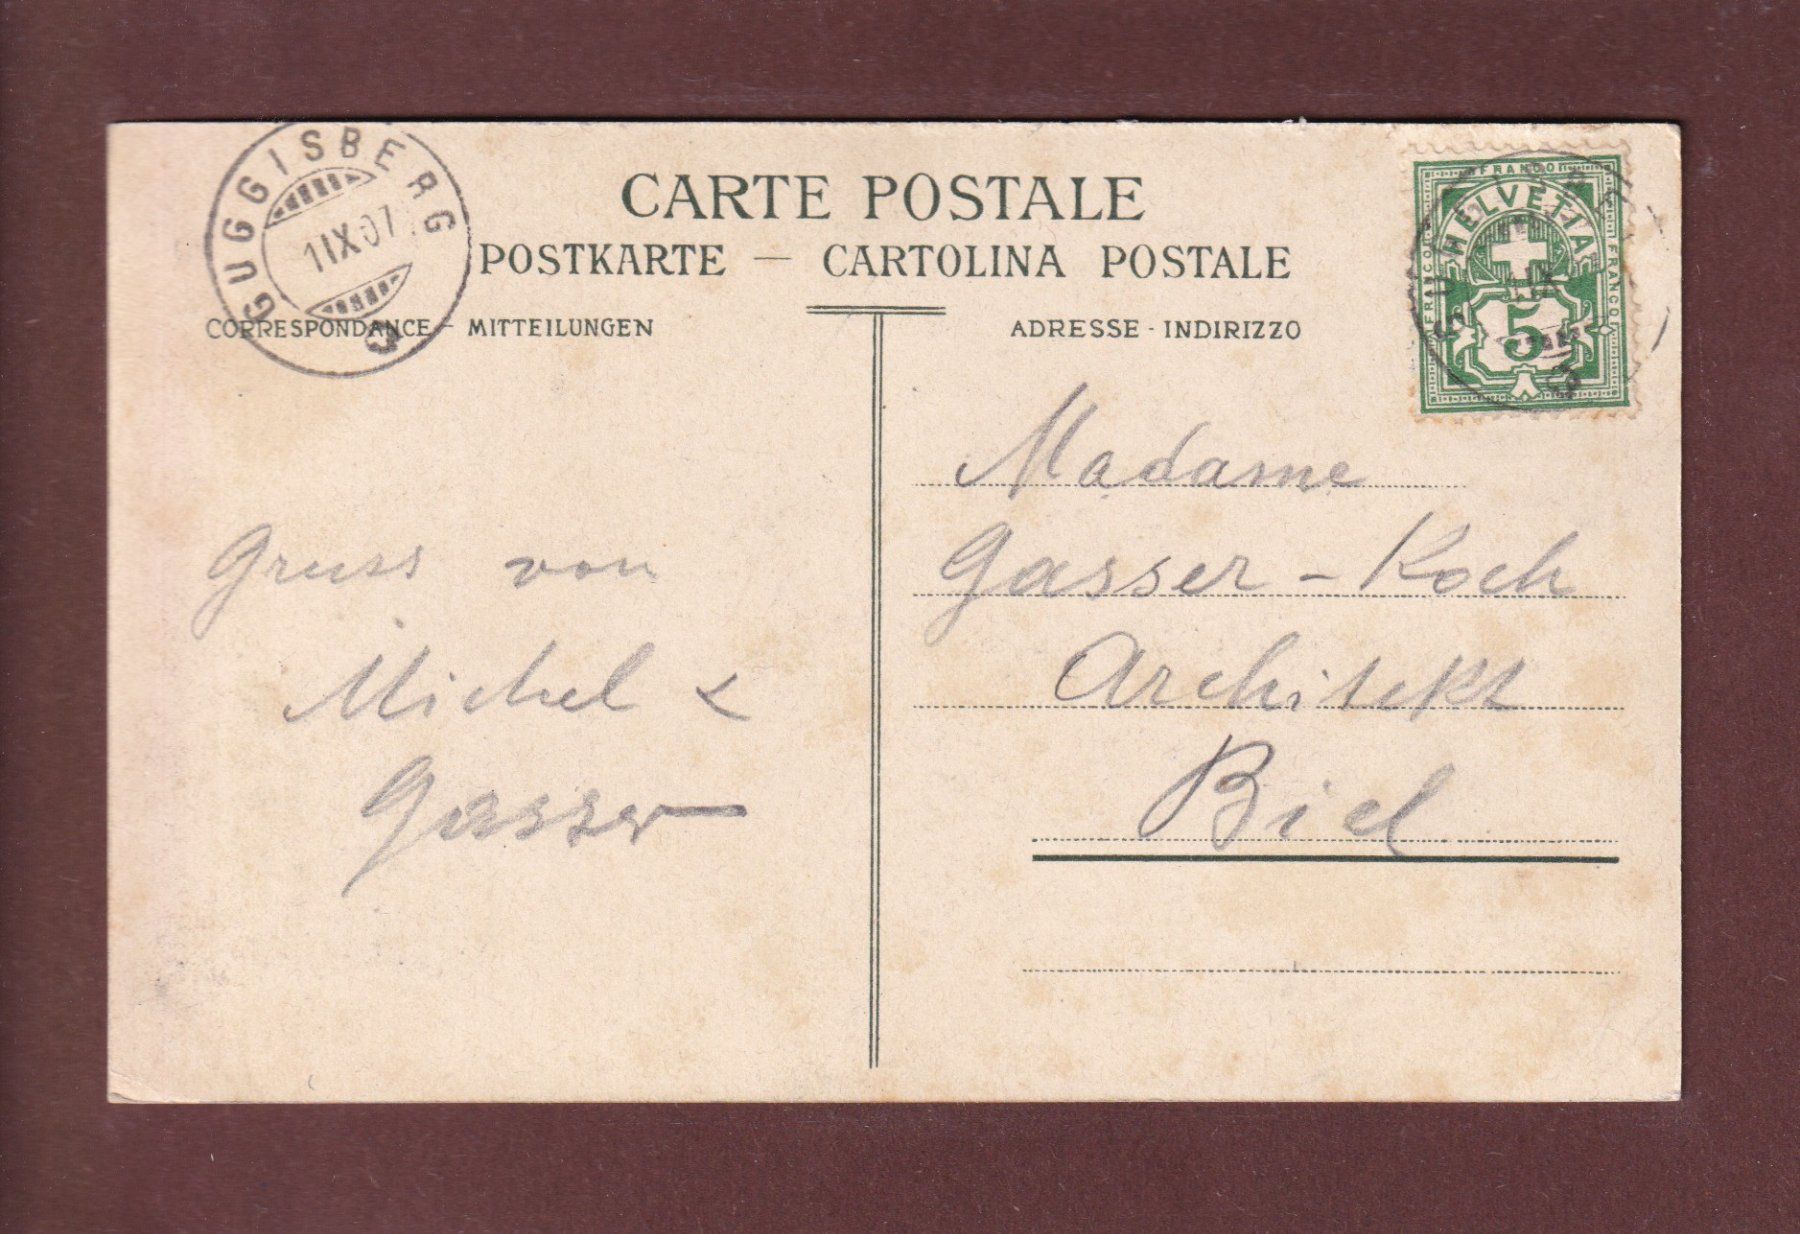 GUGGISBERG
1 IX 07
CARTE POSTALE
POSTKARTE — CARTOLINA POSTALE
CORRESPONDANCE - MITTEILUNGEN
ADRESSE - INDIRIZZO
FRANCO
FRANCO
FRANCO
HELVETIA
5
Gruss von
Michel &
Gasser
Madame
Gasser - Koch
Architekt
Biel